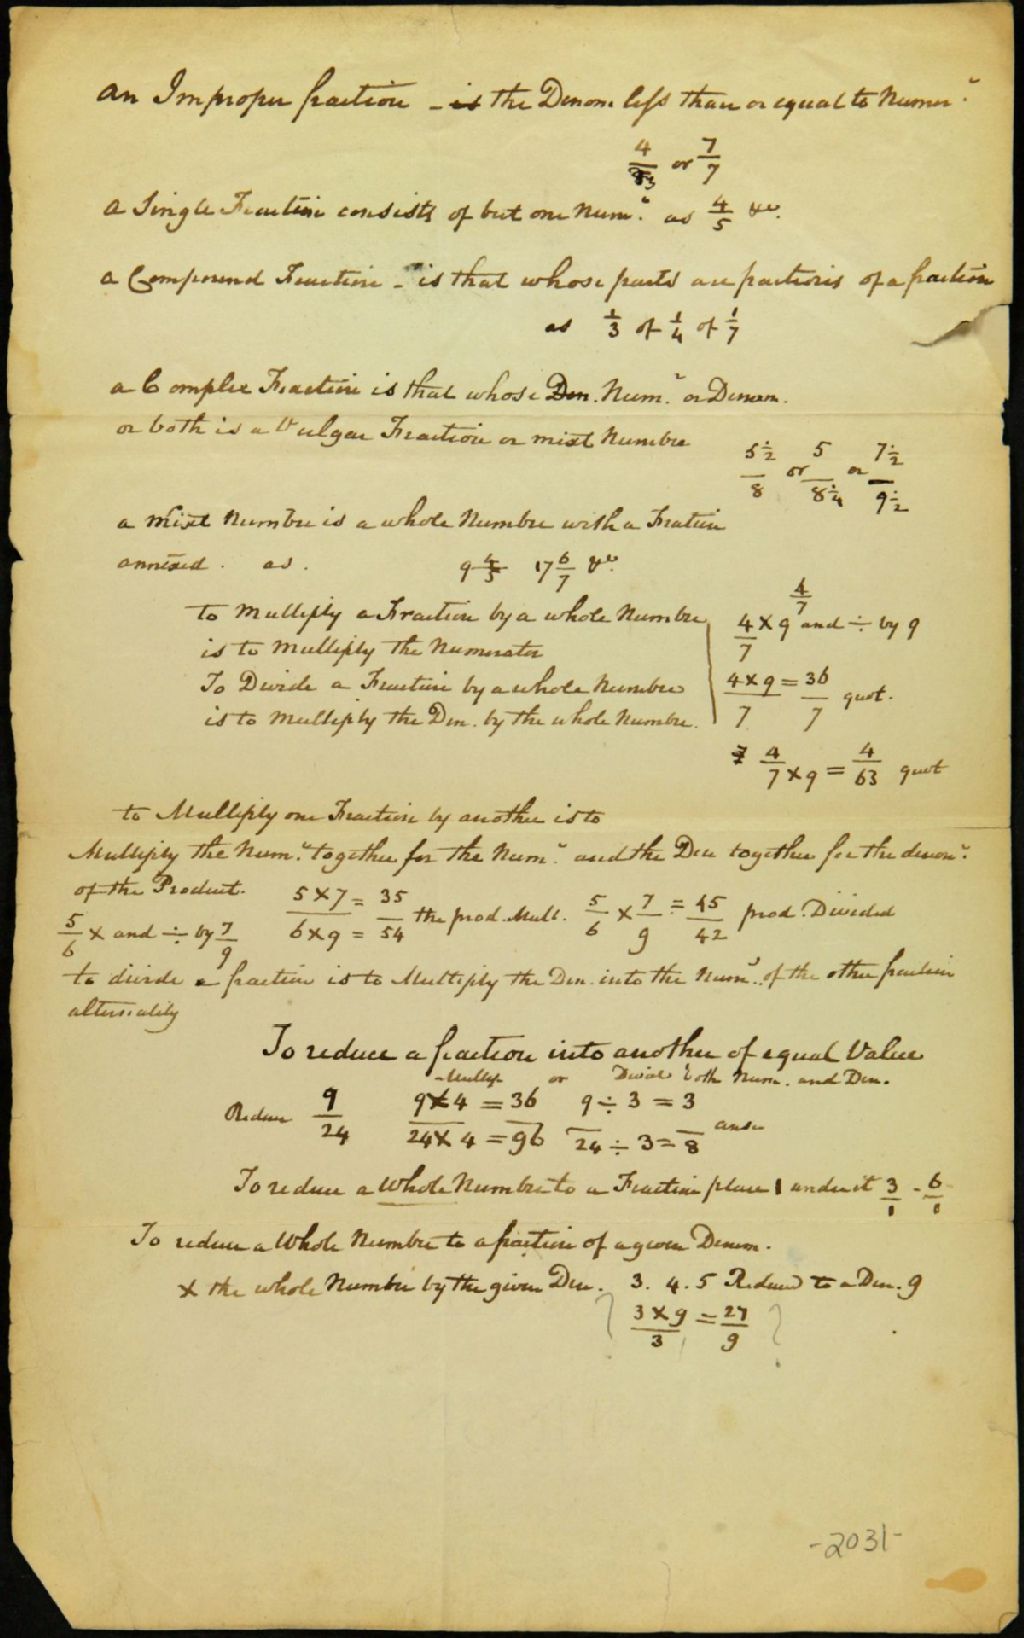 an Improper fraction - is the Denom. less than or equal to Numer.
4/3 or 7/7
a Single Fraction consists of but one Num.r as 4/5 &c.
a Compound Fraction - is that whose parts are fractions of a fraction
as 1/3 of 1/4 of 1/7
a Complex Fraction is that whose Den. Num.r or Denom.
or both is a Vulgar Fraction or mixt Number
5 1/2 / 8 or 5 / 8 1/4 or 7 1/2 / 9 1/2
a mixt Number is a whole Number with a Fration
annexed. as. 9 4/5 17 6/7 &c.
to multiply a Fraction by a whole Number
is to multiply the Numerator
To Divide a Fraction by a whole Number
is to multiply the Den. by the whole Number.
4/7
4/7 × 9 and ÷ by 9
4×9/7 = 36/7 quot.
4/7×9 = 4/63 quot
to Multiply one Fraction by another is to
Multiply the Num.r together for the Num.r and the Den together for the denom.r
of the Product. 5×7/6×9 = 35/54 the prod. Mult. 5/6 × 7/9 = 45/42 prod. Divided
5/6 × and ÷ by 7/9
to divide a fraction is to Multiply the Den. into the Num.r of the other fraction
alternately
To reduce a fraction into another of equal Value
Multip or Divide both Num. and Den.
Reduce 9/24 9×4/24×4 = 36/96 9÷3/24÷3 = 3/8 answ
To reduce a Whole Number to a Fraction place 1 under it 3/1 - 6/1
To reduce a Whole Number to a fraction of a given Denom.
× the whole Number by the given Den. 3. 4. 5 Reduced to a Den. 9
3×9/3 = 27/9
-2031-